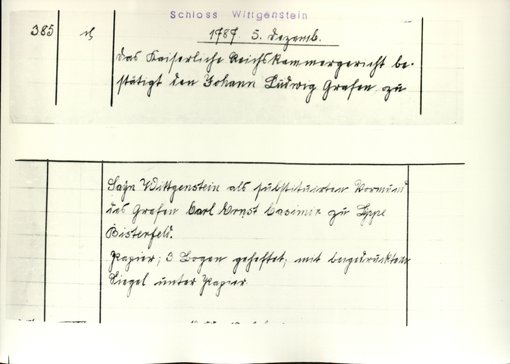 Schloss Wittgenstein
385
1787. 5. Dezemb.
Das Kaiserliche Reichskammergericht be-
stätigt den Johann Ludwig Grafen zu
Sayn Wittgenstein als substituierten Vormund
des Grafen Carl Ernst Casimir zu Lippe
Bisterfeld.
Papier, 3 Bogen geheftet, mit beigedrucktem
Siegel unter Papier